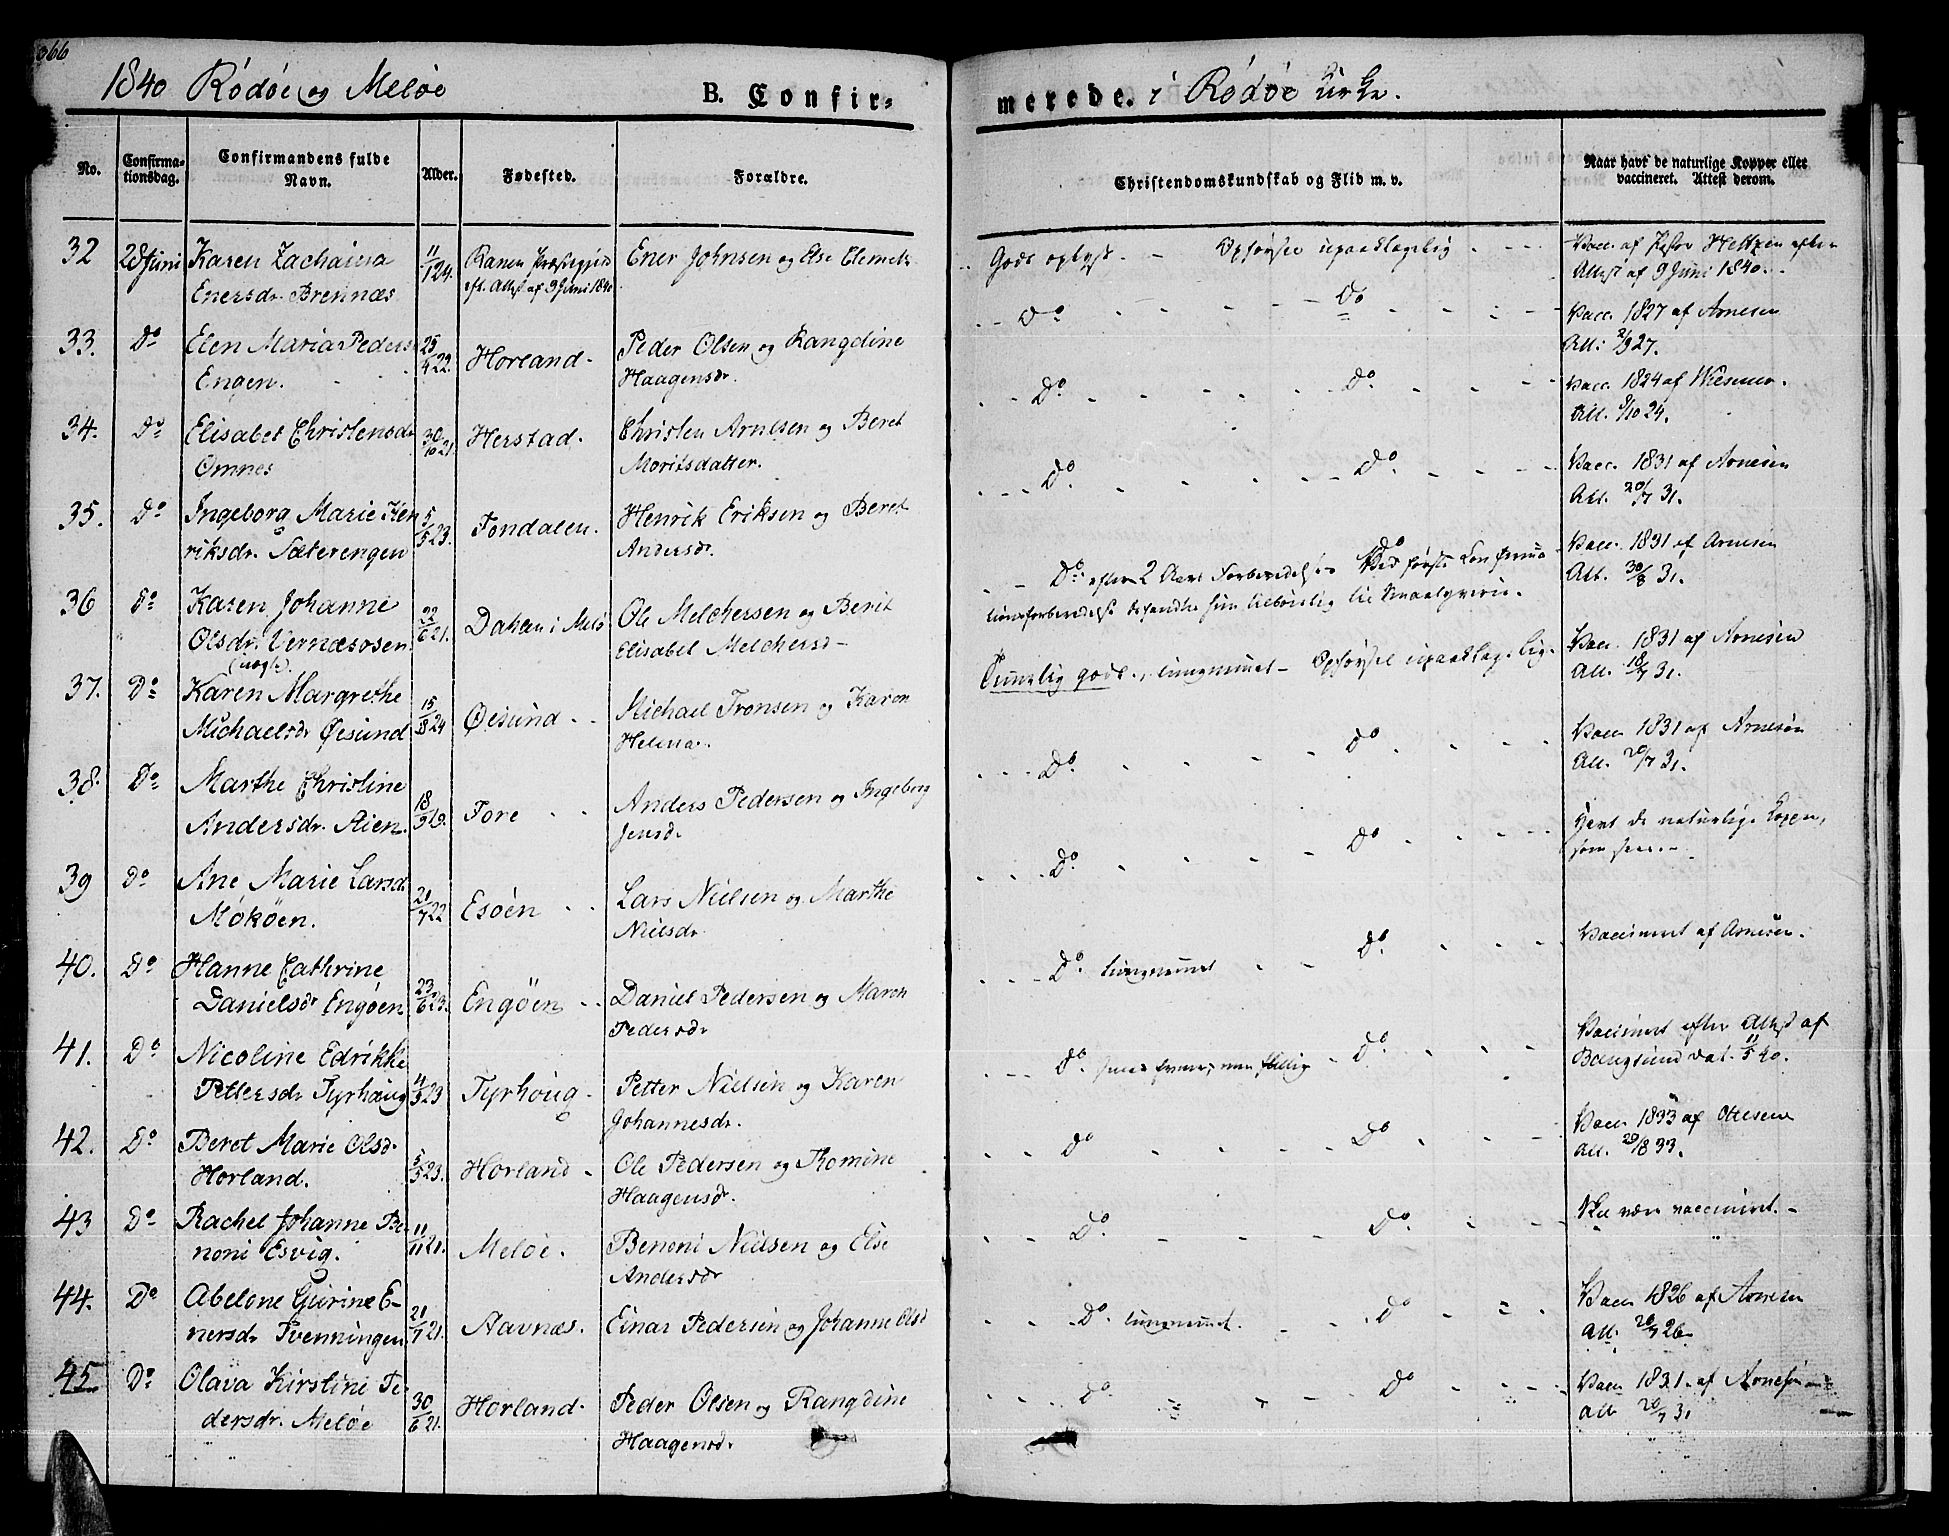 366
1840 Rödöe og Melöe B. Confirmerede. i Rödöe Kirke.
No. Confirmationsdag. Confirmandens fulde Navn. Alder. Fødested. Forældre. Christendomskundskab og Flid m. v. Naar havt de naturlige Kopper eller vaccineret. Attest derom.
32 28 Juni Karen Zacharina 11/1 24. Ranen Præstegjeld Ener Johnsen og Else Clemets. Godt oplyst. - Opførsel upaaklagelig Vacc. af Pastor Heltzen efter
Enersdr. Brennæs eft. Attest af 9 Juni 1840 Attest af 9 Juni 1840.
33. Do Elen Maria Peders 25/4 22. Horland Peder Olsen og Rangdine Do Do Vacc. 1827 af Arnesen
Engen. Haagensdr. Att: 2/9 27.
34. Do Elisabet Christensdr 30/10 21. Herstad. Christen Arntsen og Beret Do. Do. Vacc. 1824 af
Omnes Moritsdatter. Att. 9/10 24.
35. Do Ingeborg Marie Hen 5/5 23. Fondalen. Henrik Eriksen og Beret Do. Do. Vacc. 1831 af Arnesen
riksdr. Sæterengen Andersdr. Att. 20/7 31.
36 Do Karen Johanne 22/6 21. Dahlen i Melö Ole Melchersen og Berit Do. efter 2 Aars Forberedelse Do Ved første Confirma Vacc. 1831 af Arnesen
Olsdr. Vernæsosen Elisabet Melchersd tionsforberedelse befandtes hun tilbøielig til Smaatyverie. Att. 30/8 31.
(uægte)
37. Do Karen Margrethe 15/8 24 Øesund Michael Tronsen og Karen Temmelig godt., tungnemmet - Opførsel upaaklagelig. Vacc. 1831 af Arnesen
Michaelsdr Øesund Helena. Att. 18/7 31.
38. Do Marthe Christine 18/9 19. Fore Anders Pedersen og Ingeborg Do. Do Vacc. 1831 af Arnesen
Andersdr. Aien. Jensd. Att. 20/7 31.
39 Do Ane Marie Larsdr 21/7 22 Esöen Lars Nielsen og Marthe Do. Do Havt de naturlige Kopper,
Mököen. Nielsdr som sees.
40. Do Hanne Cathrine 23/6 23. Engöen Daniel Pedersen og Maren Do. tungnemmet Do. Vaccineret af Arnesen.
Danielsdr Engöen. Pedersdr
41. Do Nicoline Edrikke 4/3 23 Tyrhoug Petter Nielsen og Karen Do. svag Evner, men flittig Do. Vaccineret efter Attest af
Pettersdr Tyrhaug Johannesdr. Bangsund dat. 11/5 40.
42. Do Beret Marie Olsdr 5/3 23. Horland Ole Pedersen og Romine Do Do. Vacc. 1833 af Ottesen
Horland. Haagensdr. Att. 29/8 33.
43 Do Rachel Johanne Be 11/11 21. Melöe. Benoni Nielsen og Else Do. Do. Skal være vaccineret. -
noni Esvig. Andersdr
44. Do Abelone Gurine E- 21/7 21. Aavnæs. Einar Pedersen og Johanne Olsd Do. tungnemmet. Do Vacc. 1826 af Arnesen
nersdr Svenningen Att. 20/7 26
45 Do Olava Kirstine Pe 30/6 21. Horland. Peder Olsen og Rangdine Do Do Vacc. 1831. af Arnesen
dersdr. Melöe Haagensd. Att 20/7 31